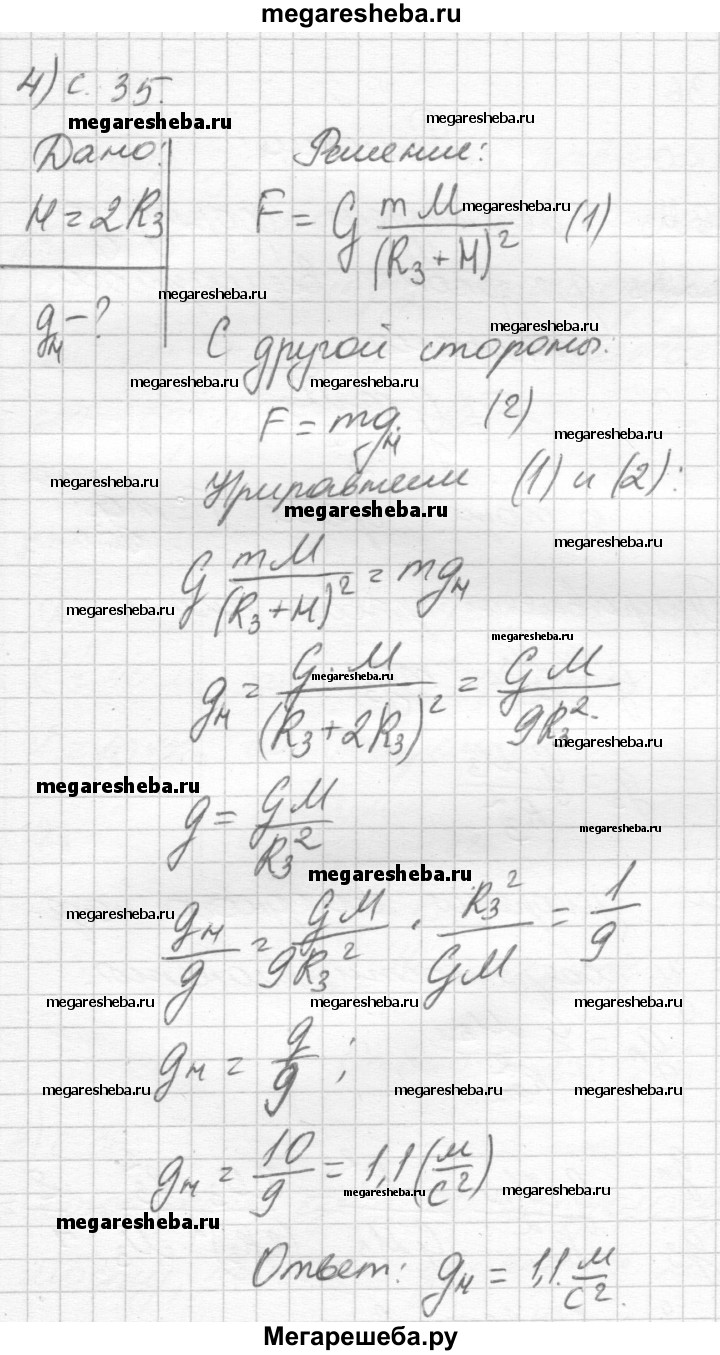 megaresheba.ru
4) с. 35.
megaresheba.ru megaresheba.ru
Дано: Решение:
H = 2R₃ F = G mM/(R₃+H)² (1)
megaresheba.ru
megaresheba.ru
gₕ - ? megaresheba.ru
С другой стороны:
megaresheba.ru megaresheba.ru
F = mgₕ (2)
megaresheba.ru
megaresheba.ru
Приравняем (1) и (2):
megaresheba.ru
megaresheba.ru
G mM/(R₃+H)² = mgₕ
megaresheba.ru
megaresheba.ru
gₕ = G·M/(R₃+2R₃)² = GM/9R₃²
megaresheba.ru
megaresheba.ru
megaresheba.ru
g = GM/R₃²
megaresheba.ru
megaresheba.ru
megaresheba.ru
gₕ/g = GM/9R₃² · R₃²/GM = 1/9
megaresheba.ru megaresheba.ru megaresheba.ru
gₕ = g/9;
megaresheba.ru megaresheba.ru megaresheba.ru
gₕ = 10/9 = 1,1 (м/с²)
megaresheba.ru megaresheba.ru
megaresheba.ru
Ответ: gₕ = 1,1 м/с².
Мегарешеба.ру